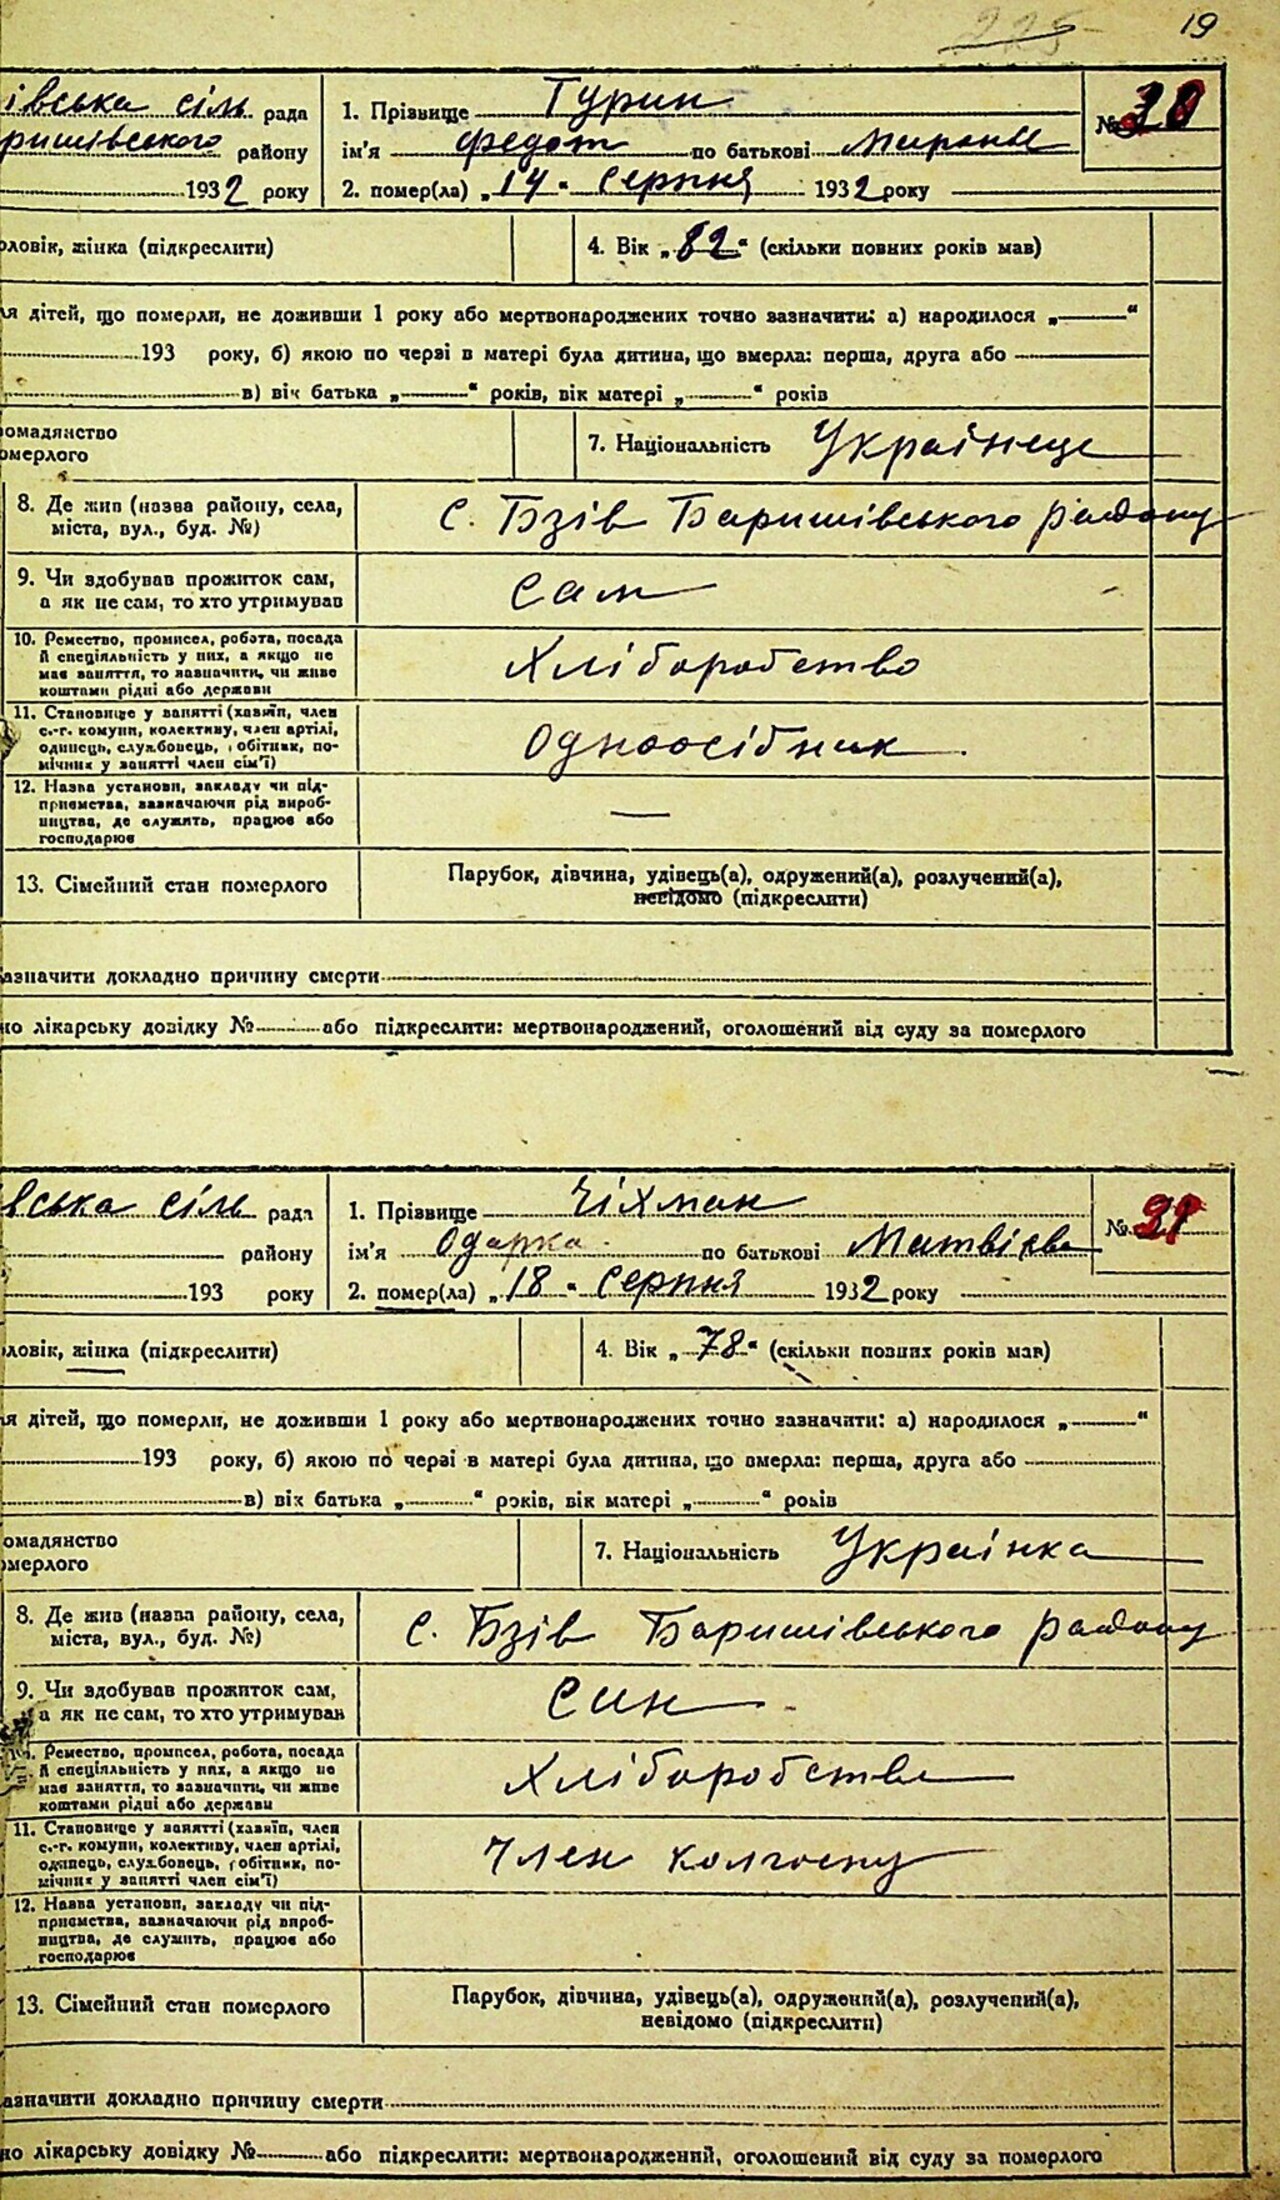 225 19
івська сіль рада 1. Прізвище Турин № 30
ришівського району ім'я Федот по батькові Мирон
1932 року 2. помер(ла) „14“ Серпня 1932 року
оловік, жінка (підкреслити) 4. Вік „82“ (скільки повних років мав)
ля дітей, що померли, не доживши 1 року або мертвонароджених точно зазначити: а) народилося „ “
193 року, б) якою по черзі в матері була дитина, що вмерла: перша, друга або
в) вік батька „ “ років, вік матері „ “ років
ромадянство
омерлого 7. Національність Українець
8. Де жив (назва району, села,
міста, вул., буд. №) с. Бзів Баришівського району
9. Чи здобував прожиток сам,
а як не сам, то хто утримував сам
10. Ремество, промисел, робота, посада
й спеціяльність у них, а якщо не
має заняття, то зазначити, чи живе
коштами рідні або держави Хліборобство
11. Становище у занятті (хазяїн, член
с.-г. комуни, колективу, член артілі,
одинець, службовець, робітник, по-
мічник у занятті член сім'ї) Одноосібник
12. Назва установи, закладу чи під-
приємства, зазначаючи рід вироб-
ництва, де служить, працює або
господарює —
13. Сімейний стан померлого Парубок, дівчина, удівець(а), одружений(а), розлучений(а),
невідомо (підкреслити)
азначити докладно причину смерти
но лікарську довідку № або підкреслити: мертвонароджений, оголошений від суду за померлого
вська сіль рада 1. Прізвище Чіхман № 31
району ім'я Одарка по батькові Матвієва
193 року 2. помер(ла) „18“ Серпня 1932 року
оловік, жінка (підкреслити) 4. Вік „78“ (скільки повних років мав)
ля дітей, що померли, не доживши 1 року або мертвонароджених точно зазначити: а) народилося „ “
193 року, б) якою по черзі в матері була дитина, що вмерла: перша, друга або
в) вік батька „ “ років, вік матері „ “ років
омадянство
омерлого 7. Національність Українка
8. Де жив (назва району, села,
міста, вул., буд. №) с. Бзів Баришівського району
9. Чи здобував прожиток сам,
а як не сам, то хто утримував Син
Ремество, промисел, робота, посада
й спеціяльність у них, а якщо не
має заняття, то зазначити, чи живе
коштами рідні або держави Хліборобство
11. Становище у занятті (хазяїн, член
с.-г. комуни, колективу, член артілі,
одинець, службовець, робітник, по-
мічник у занятті член сім'ї) Член колгоспу
12. Назва установи, закладу чи під-
приємства, зазначаючи рід вироб-
ництва, де служить, працює або
господарює
13. Сімейний стан померлого Парубок, дівчина, удівець(а), одружений(а), розлучений(а),
невідомо (підкреслити)
азначити докладно причину смерти
но лікарську довідку № або підкреслити: мертвонароджений, оголошений від суду за померлого